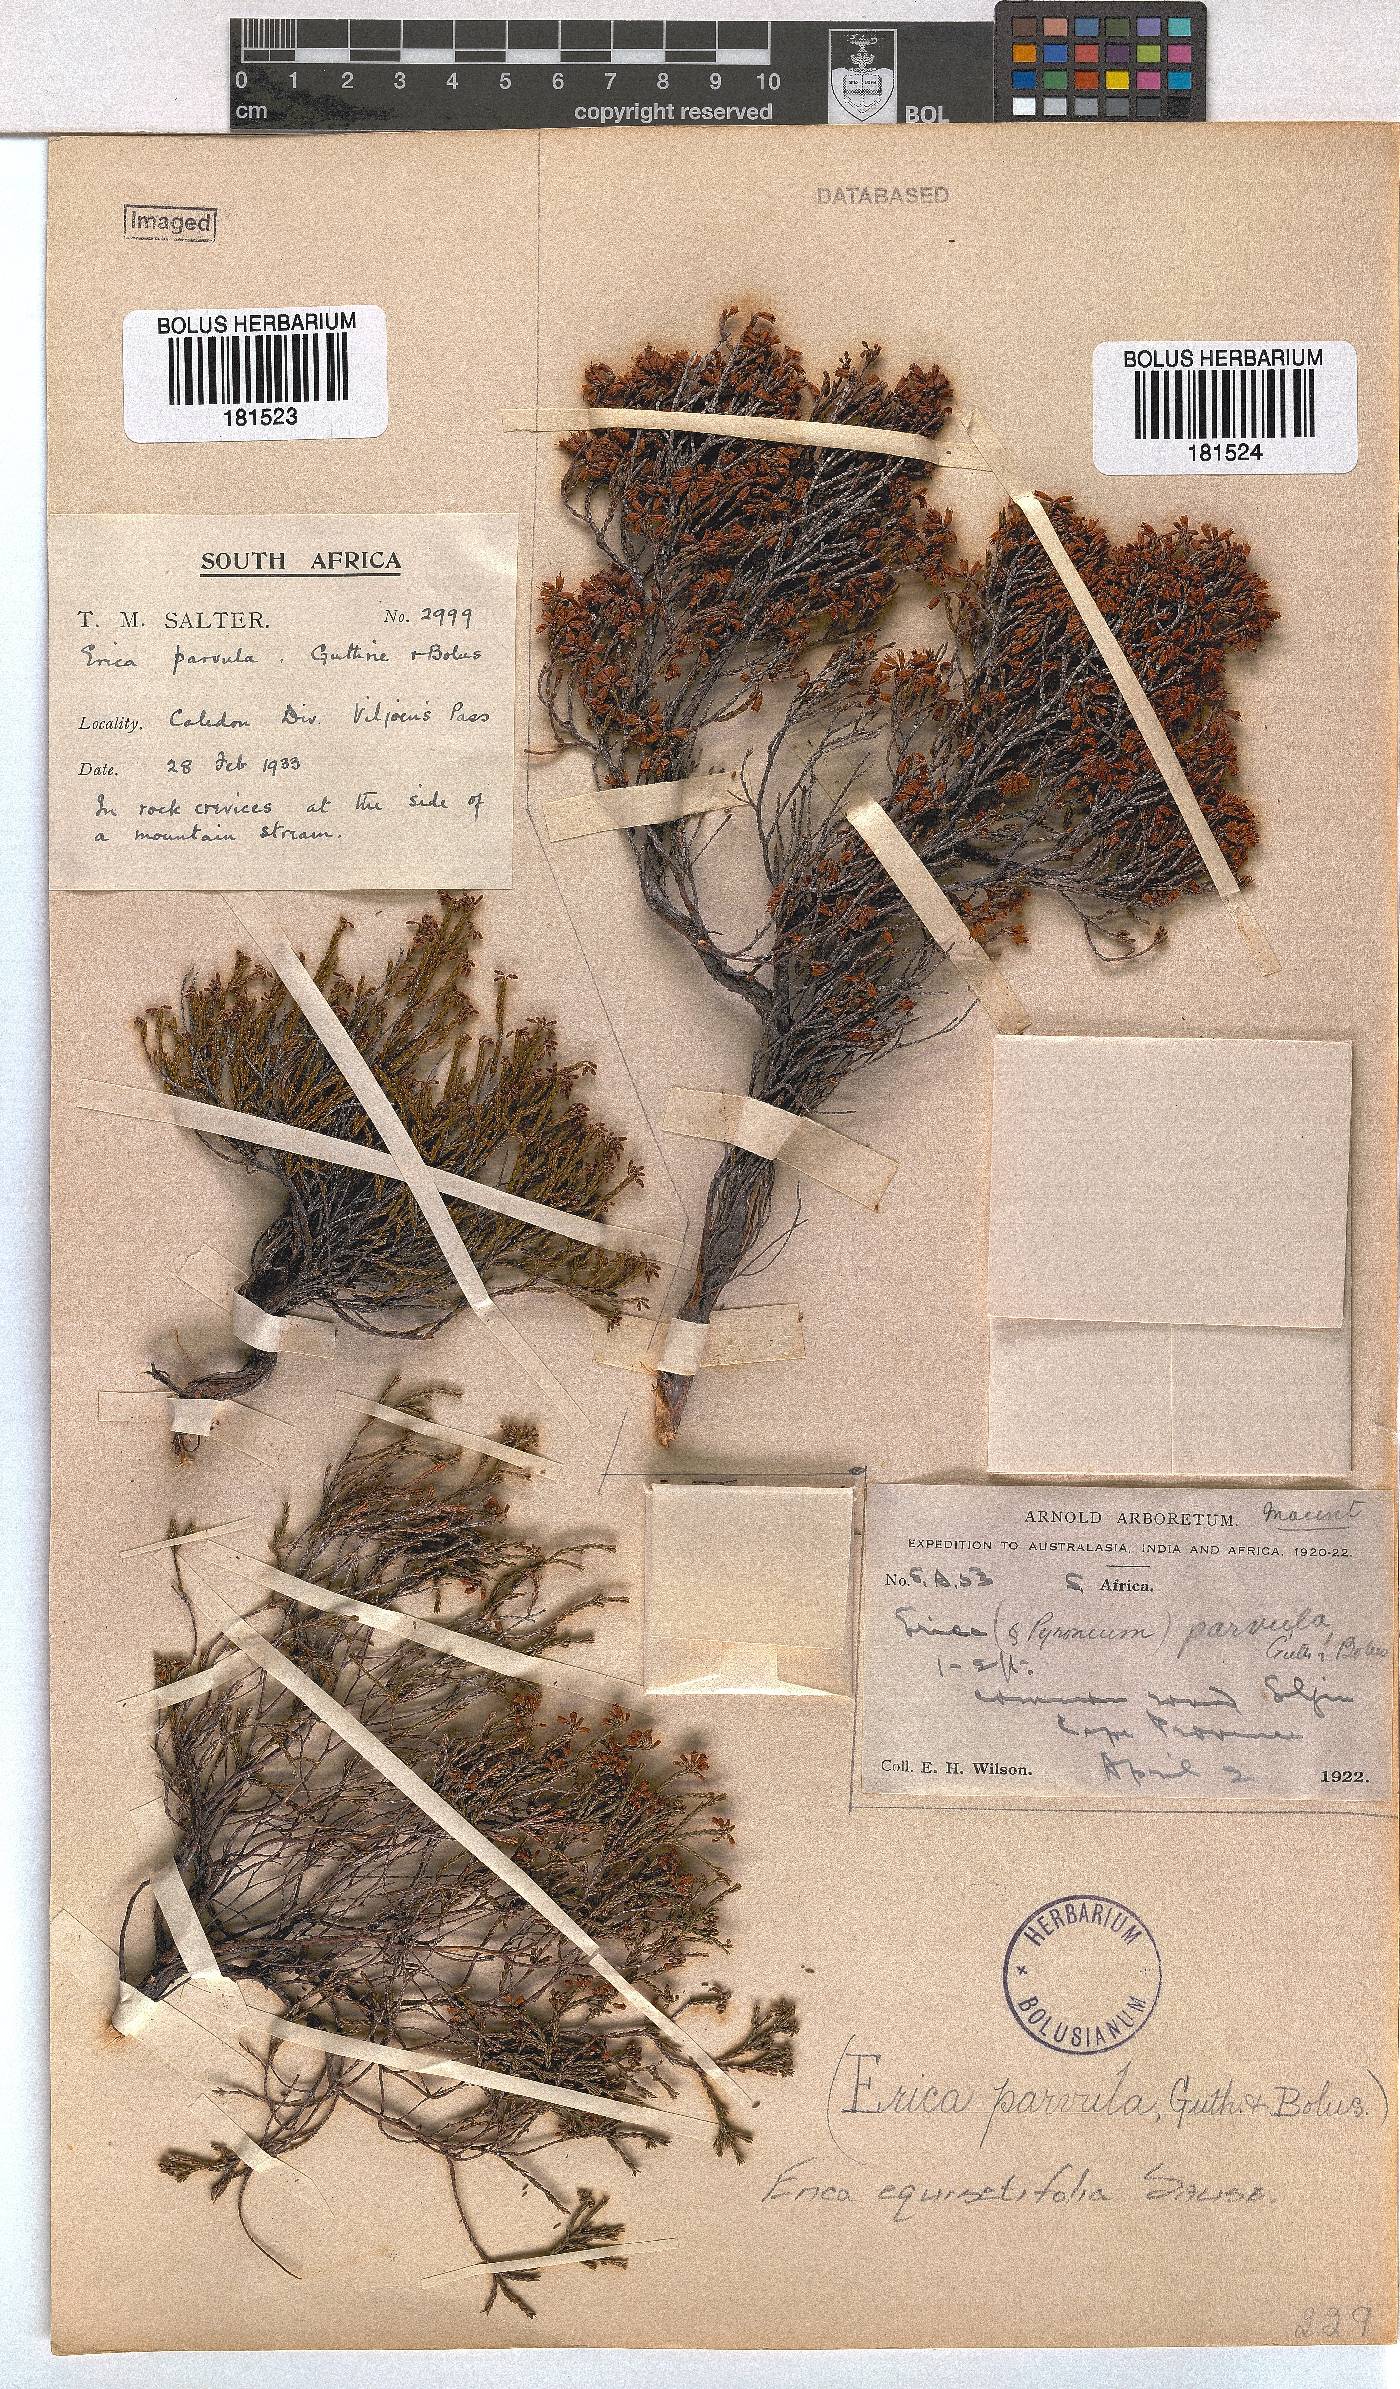 0 1 2 3 4 5 6 7 8 9 10
cm copyright reserved BOL
Imaged
DATABASED
BOLUS HERBARIUM
181523
BOLUS HERBARIUM
181524
SOUTH AFRICA
T. M. SALTER. No. 2999
Erica parvula. Guthrie & Bolus
Locality. Caledon Div. Viljoen's Pass
Date. 28 Feb 1933
In rock crevices at the side of
a mountain stream.
ARNOLD ARBORETUM. Mount
EXPEDITION TO AUSTRALASIA, INDIA AND AFRICA, 1920-22.
No. S. A. 53 S. Africa.
Erica (§ Pyronium) parvula,
Guth & Bolus
1-2 ft.
common Elgin
Cape Province
April 2
Coll. E. H. Wilson. 1922.
HERBARIUM
BOLUSIANUM
(Erica parvula, Guth. & Bolus.)
Erica equisetifolia Salisb.
229